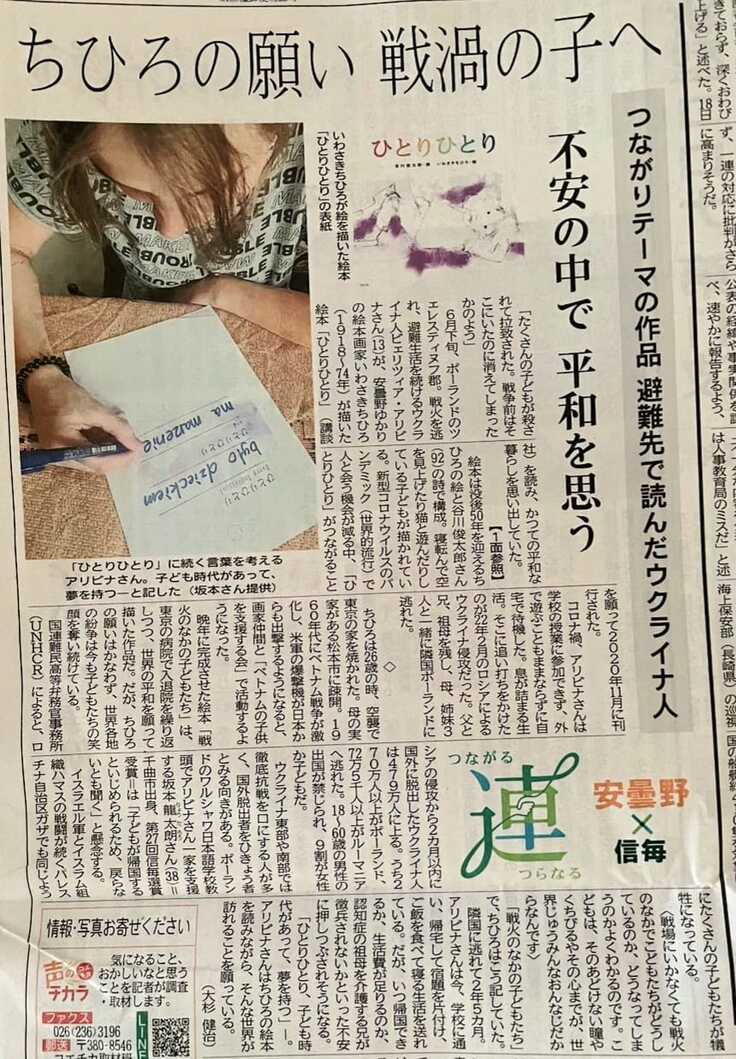 ちひろの願い 戦渦の子へ
つながりテーマの作品 避難先で読んだウクライナ人
不安の中で 平和を思う
ひとりひとり
いわさきちひろが絵を描いた絵本
「ひとりひとり」の表紙
ma marzenie
ひとりひとり
było dzieckiem
ひとりひとり
「ひとりひとり」に続く言葉を考える
アリビナさん。子ども時代があって、
夢を持つ―と記した（坂本さん提供）
「たくさんの子どもが殺さ
れて拉致された。戦争前はそ
こにいたのに消えてしまった
かのよう」
６月下旬、ポーランドのツ
ェレスティヌフ郡。戦火を逃
れ、避難生活を続けるウクラ
イナ人ビェリツィア・アリビ
ナさん(13)が、安曇野ゆかり
の絵本画家いわさきちひろ
（１９１８～74年）が描いた
絵本「ひとりひとり」（講談
社）を読み、かつての平和な
暮らしを思い出していた。
【１面参照】
絵本は没後50年を迎えるち
ひろの絵と谷川俊太郎さん
(92)の詩で構成。寝転んで空
を見上げたり猫と遊んだりし
ている子どもが描かれてい
る。新型コロナウイルスのパ
ンデミック（世界的流行）で
人と会う機会が減る中、「ひ
とりひとり」がつながること
を願って２０２０年11月に刊
行された。
コロナ禍、アリビナさんは
学校の授業に参加できず、外
で遊ぶこともままならずに自
宅で待機した。息が詰まる生
活。そこに追い打ちをかけた
のが22年２月のロシアによる
ウクライナ侵攻だった。父と
兄、祖母を残し、母、姉妹３
人と一緒に隣国ポーランドに
逃れた。
◇
ちひろは26歳の時、空襲で
東京の家を焼かれた。母の実
家がある松本市に疎開。１９
６０年代にベトナム戦争が激
化し、米軍の爆撃機が日本か
らも出撃するようになると、
画家仲間と「ベトナムの子供
を支援する会」で活動するよ
うになった。
晩年に完成させた絵本「戦
火のなかの子どもたち」は、
東京の病院で入退院を繰り返
しつつ、世界の平和を願って
描いた作品だ。だが、ちひろ
の願いはかなわず、世界各地
の紛争は今も子どもたちの笑
顔を奪い続けている。
国連難民高等弁務官事務所
（ＵＮＨＣＲ）によると、ロ
シアの侵攻から２カ月以内に
国外に脱出したウクライナ人
は４７９万人に上る。うち２
７０万人以上がポーランド、
72万５千人以上がルーマニア
へ逃れた。18～60歳の男性の
出国が禁じられ、９割が女性
か子どもだ。
ウクライナ東部や南部では
徹底抗戦を口にする人が多
く、国外脱出者をひきょう者
とみる向きがある。ポーラン
ドのワルシャワ日本語学校教
頭でアリビナさん一家を支援
する坂本龍太朗さん(38)＝
千曲市出身、第27回信毎選賞
受賞＝は「子どもが帰国する
といじめられるため、戻らな
いとも聞く」と懸念する。
イスラエル軍とイスラム組
織ハマスの戦闘が続くパレス
チナ自治区ガザでも同じよう
にたくさんの子どもたちが犠
牲になっている。
〈戦場にいかなくても戦火
のなかでこどもたちがどうし
ているのか、どうなってしま
うのかよくわかるのです。こ
どもは、そのあどけない瞳や
くちびるやその心までが、世
界じゅうみんなおんなじだか
らなんです〉
「戦火のなかの子どもたち」
で、ちひろはこう記していた。
隣国に逃れて２年５カ月。
アリビナさんは今、学校に通
い、帰宅して宿題を片付け、
ご飯を食べて寝る生活を送れ
ている。だが、いつ帰国でき
るか、生活費が足りるのか、
認知症の祖母を介護する兄が
徴兵されないかといった不安
に押しつぶされそうになる。
「ひとりひとり、子ども時
代があって、夢を持つ―」。
アリビナさんはちひろの絵本
を読みながら、そんな世界が
訪れることを願っている。
（大杉 健治）
つながる
連
つらなる
安曇野
×
信毎
情報・写真お寄せください
声のチカラ
気になること、
おかしいなと思う
ことを記者が調査
・取材します。
ファクス
026(236)3196
郵送 〒380-8546
LINE